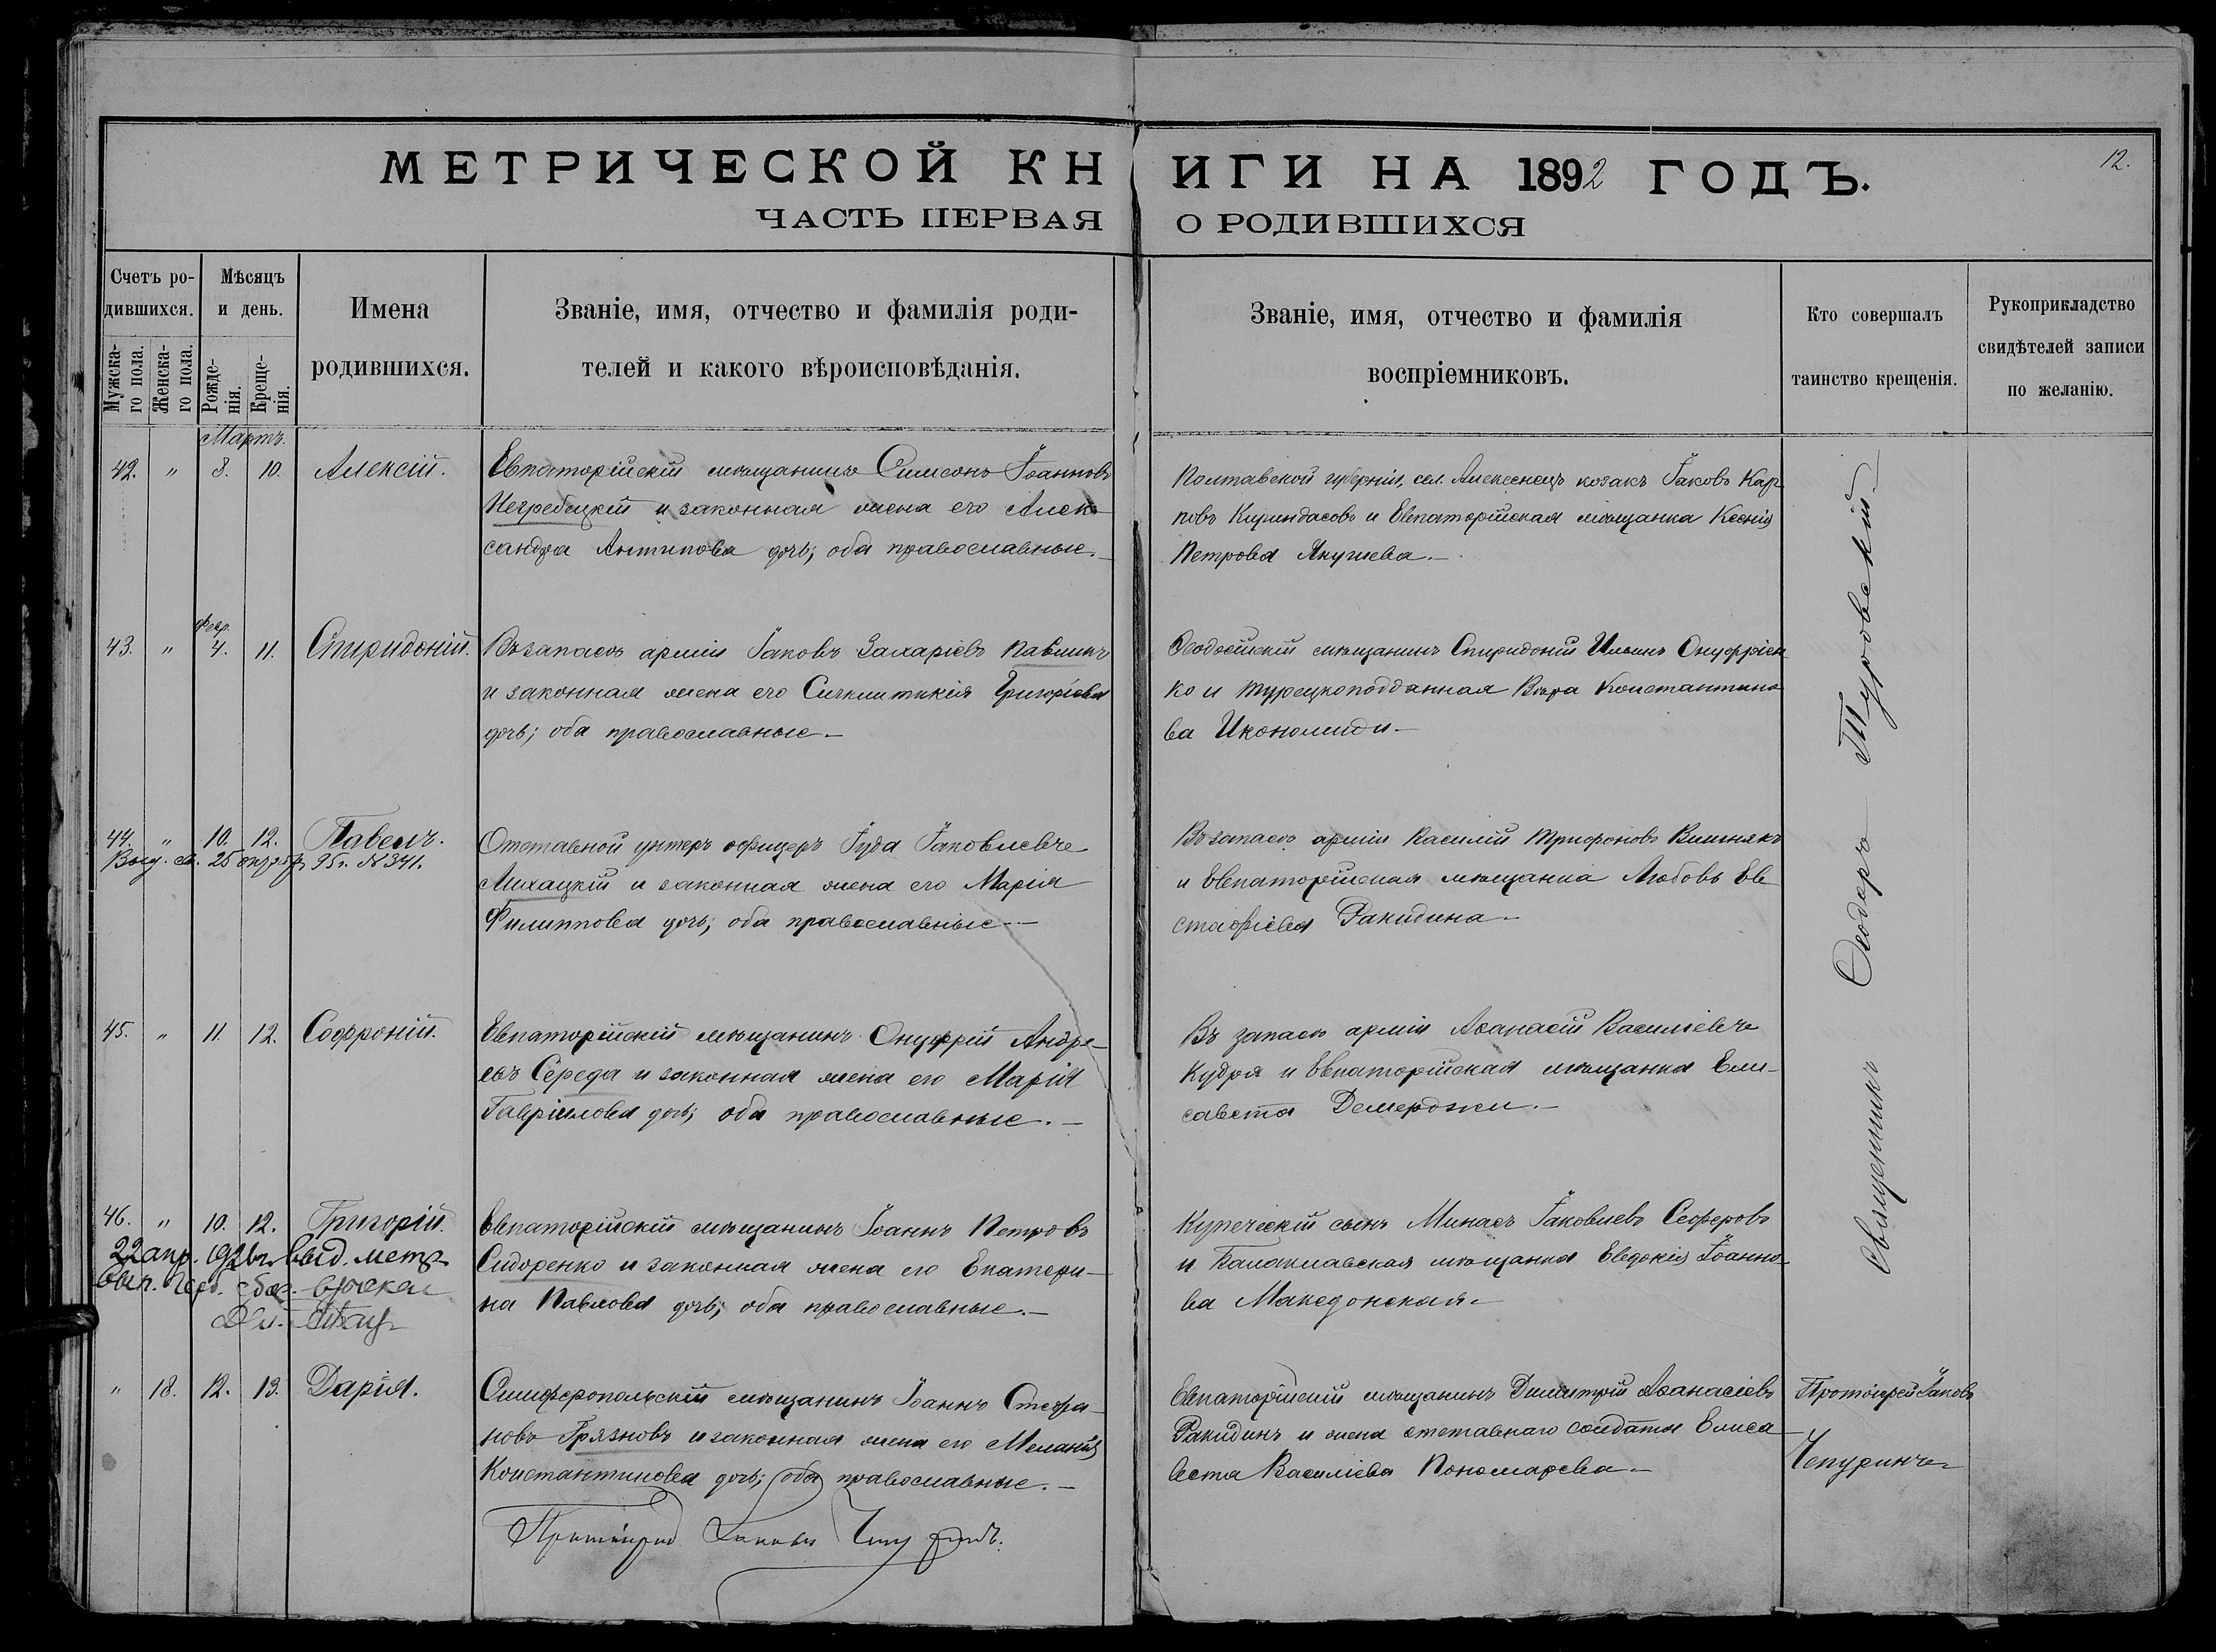 МЕТРИЧЕСКОЙ КНИГИ НА 1892 ГОДЪ.
12.
ЧАСТЬ ПЕРВАЯ О РОДИВШИХСЯ
Счетъ ро-
дившихся.
Мужска-
го пола.
Женска-
го пола.
Мѣсяцъ
и день.
Рожде-
нія.
Креще-
нія.
Имена
родившихся.
Званіе, имя, отчество и фамилія роди-
телей и какого вѣроисповѣданія.
Званіе, имя, отчество и фамилія
воспріемниковъ.
Кто совершалъ
таинство крещенія.
Рукоприкладство
свидѣтелей записи
по желанію.
Мартъ.
42. " 8. 10. Алексій.
Евпаторійскій мѣщанинъ Симеонъ Іоанновъ
Негребецкій и законная жена его Алек-
сандра Антипова дочь; оба православные.—
Полтавской губерніи, сел. козакъ Іаковъ Кар-
повъ и Евпаторійская мѣщанка Ксенія
Петрова Якушева.—
43. " Февр. 4. 11. Спиридоній.
Въ запасѣ арміи Іаковъ Захаріевъ Павликъ
и законная жена его Синклитикія Григоріева
дочь; оба православные—
Ѳеодосійскій мѣщанинъ Спиридоній Ильинъ Онуфріен-
ко и турецкоподданная Вѣра Константино-
ва Икономиди—
44. " 10. 12. Павелъ.
Выд. св. 25 95 г. N 341.
Отставной унтеръ офицеръ Іуда Іаковлевъ
Лихацкій и законная жена его Марія
Филиппова дочь; оба православные—
Въ запасѣ арміи Василій Трифоновъ Вишнякъ
и Евпаторійская мѣщанка Любовь Ев-
стафіева Ракидина—
45. " 11. 12. Софроній.
Евпаторійскій мѣщанинъ Онуфрій Андре-
евъ Середа и законная жена его Марія
Гавріилова дочь; оба православные.—
Въ запасѣ арміи Аѳанасій Василіевъ
Кудря и Евпаторійская мѣщанка Ели-
савета Демерджи.—
46. " 10. 12. Григорій.
22 апр. 1926 г. выд. метр.
Евпаторійскій мѣщанинъ Іоаннъ Петровъ
Сидоренко и законная жена его Екатери-
на Павлова дочь; оба православные.—
Купеческій сынъ Минасъ Іаковлевъ Сеферовъ
и Балаклавская мѣщанка Евдокія Іоанно-
ва Македонская—
Священникъ Ѳеодоръ Туровскій
" 18. 12. 13. Дарія.
Симферопольскій мѣщанинъ Іоаннъ Стефа-
новъ Грязновъ и законная жена его Меланія
Константинова дочь; оба православные.—
Евпаторійскій мѣщанинъ Димитрій Аѳанасіевъ
Ракидинъ и жена отставнаго солдата Елиса-
вета Василіева Пономарева—
Протоіерей Іаковъ
Чепуринъ
Протоіерей Іаковъ Чепуринъ.